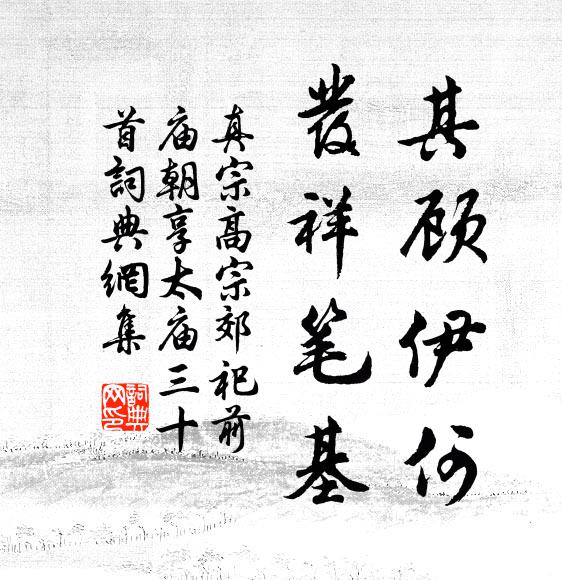 其顾伊何
發祥笔基
真宗高宗郊祀前
庙朝享太庙三十
首詞典網集
詞典網印